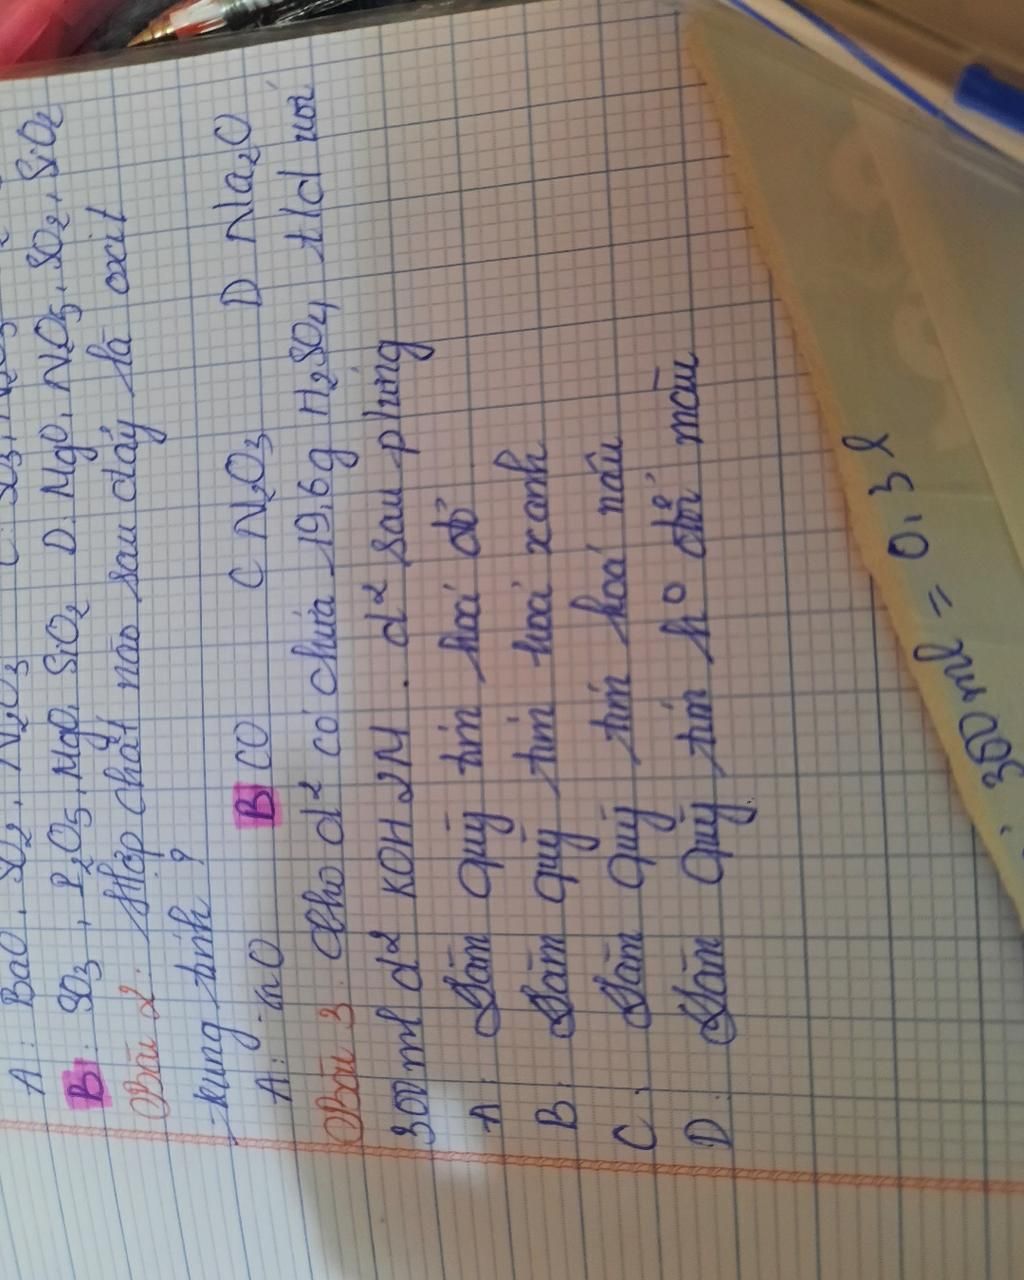 A: BaO, SO2, N2O3 C. SO3, N2O3
B: SO3, P2O5, MgO, SiO2 D. MgO, NO5, SO2, SiO2
Bài 2: Hợp chất nào sau đây là oxit
trung tính?
A: O B CO C N2O3 D Na2O
Bài 3 Cho d² có chứa 19,6g H2SO4 t/d với
300ml d² KOH 2M. d² sau p/ứng
A: Làm quỳ tím hoá đỏ
B: Làm quỳ tím hoá xanh
C: Làm quỳ tím hoá nâu
D: Làm quỳ tím ko đổi màu
300ml = 0,3l